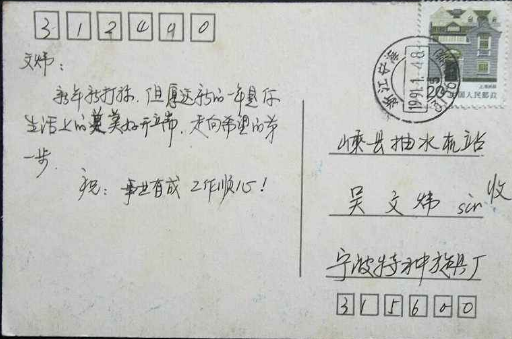 312400
文炜：
新年新打算，但愿这新的一年是你
生活上的美好开端，走向希望的第
一步。
祝：事业有成 工作顺心！
浙江宁海
1991.1.4.8
20
上海民居
中国人民邮政
嵊县抽水机站
吴文炜 收
宁波特种旋具厂
315600